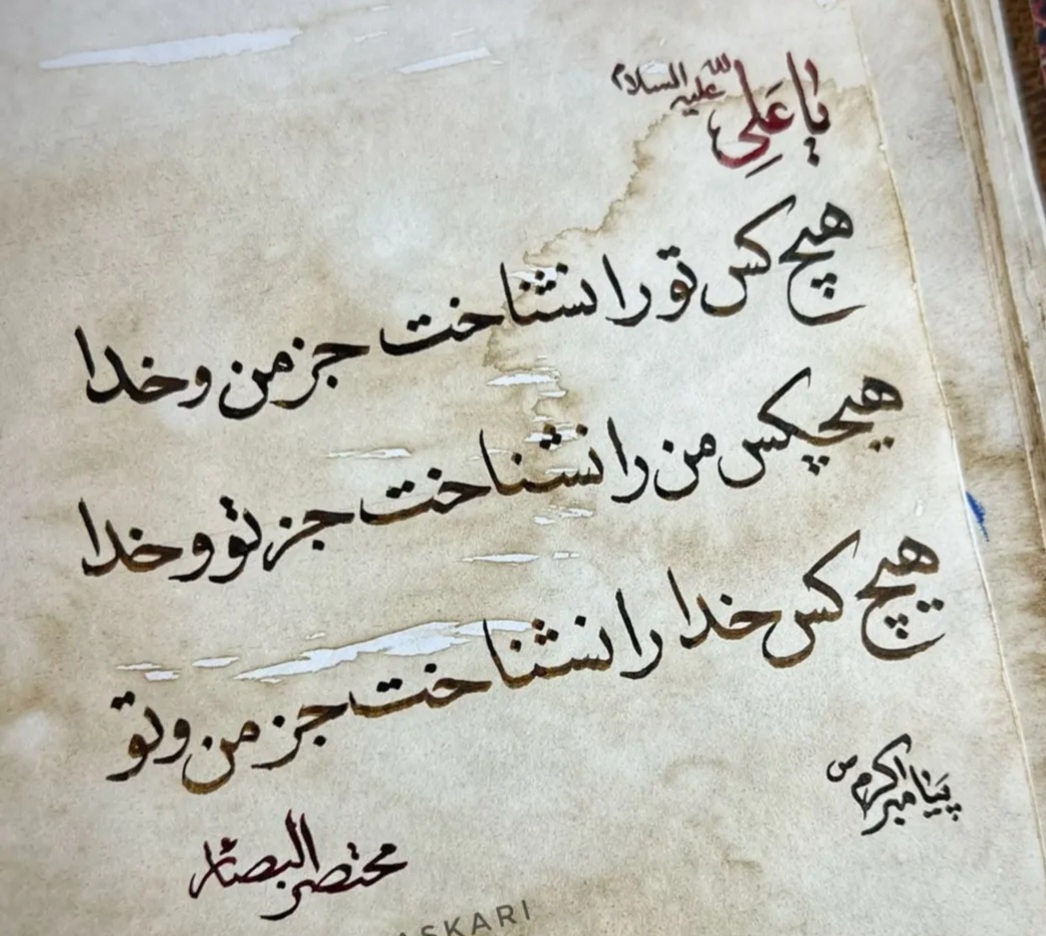 یا علی علیه السلام
هیچ کس تو را نشناخت جز من و خدا
هیچکس من را نشناخت جز تو و خدا
هیچ کس خدا را نشناخت جز من و تو
پیامبر اکرم ص
مختصر البصائر
ASKARI